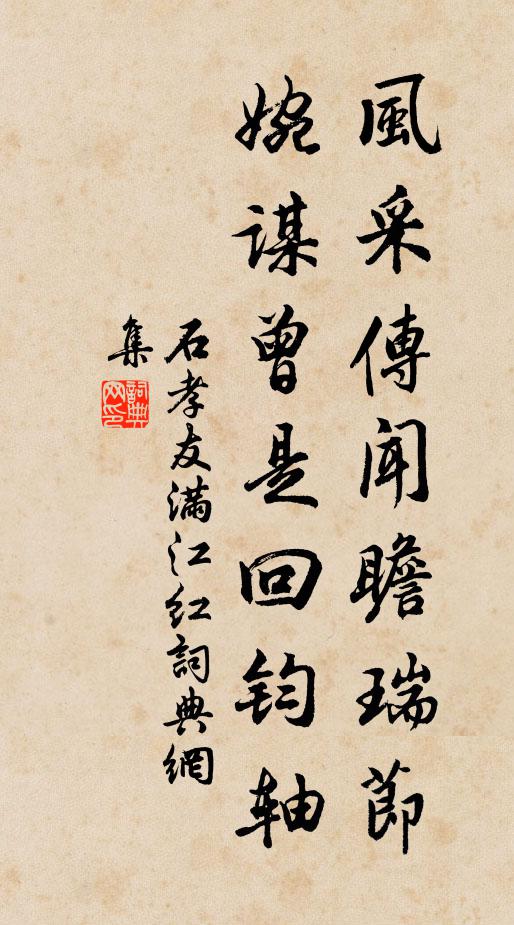 風采傳聞瞻瑞節
婉謀曾是回钧轴
石孝友滿江红詞典網
集
詞典网印